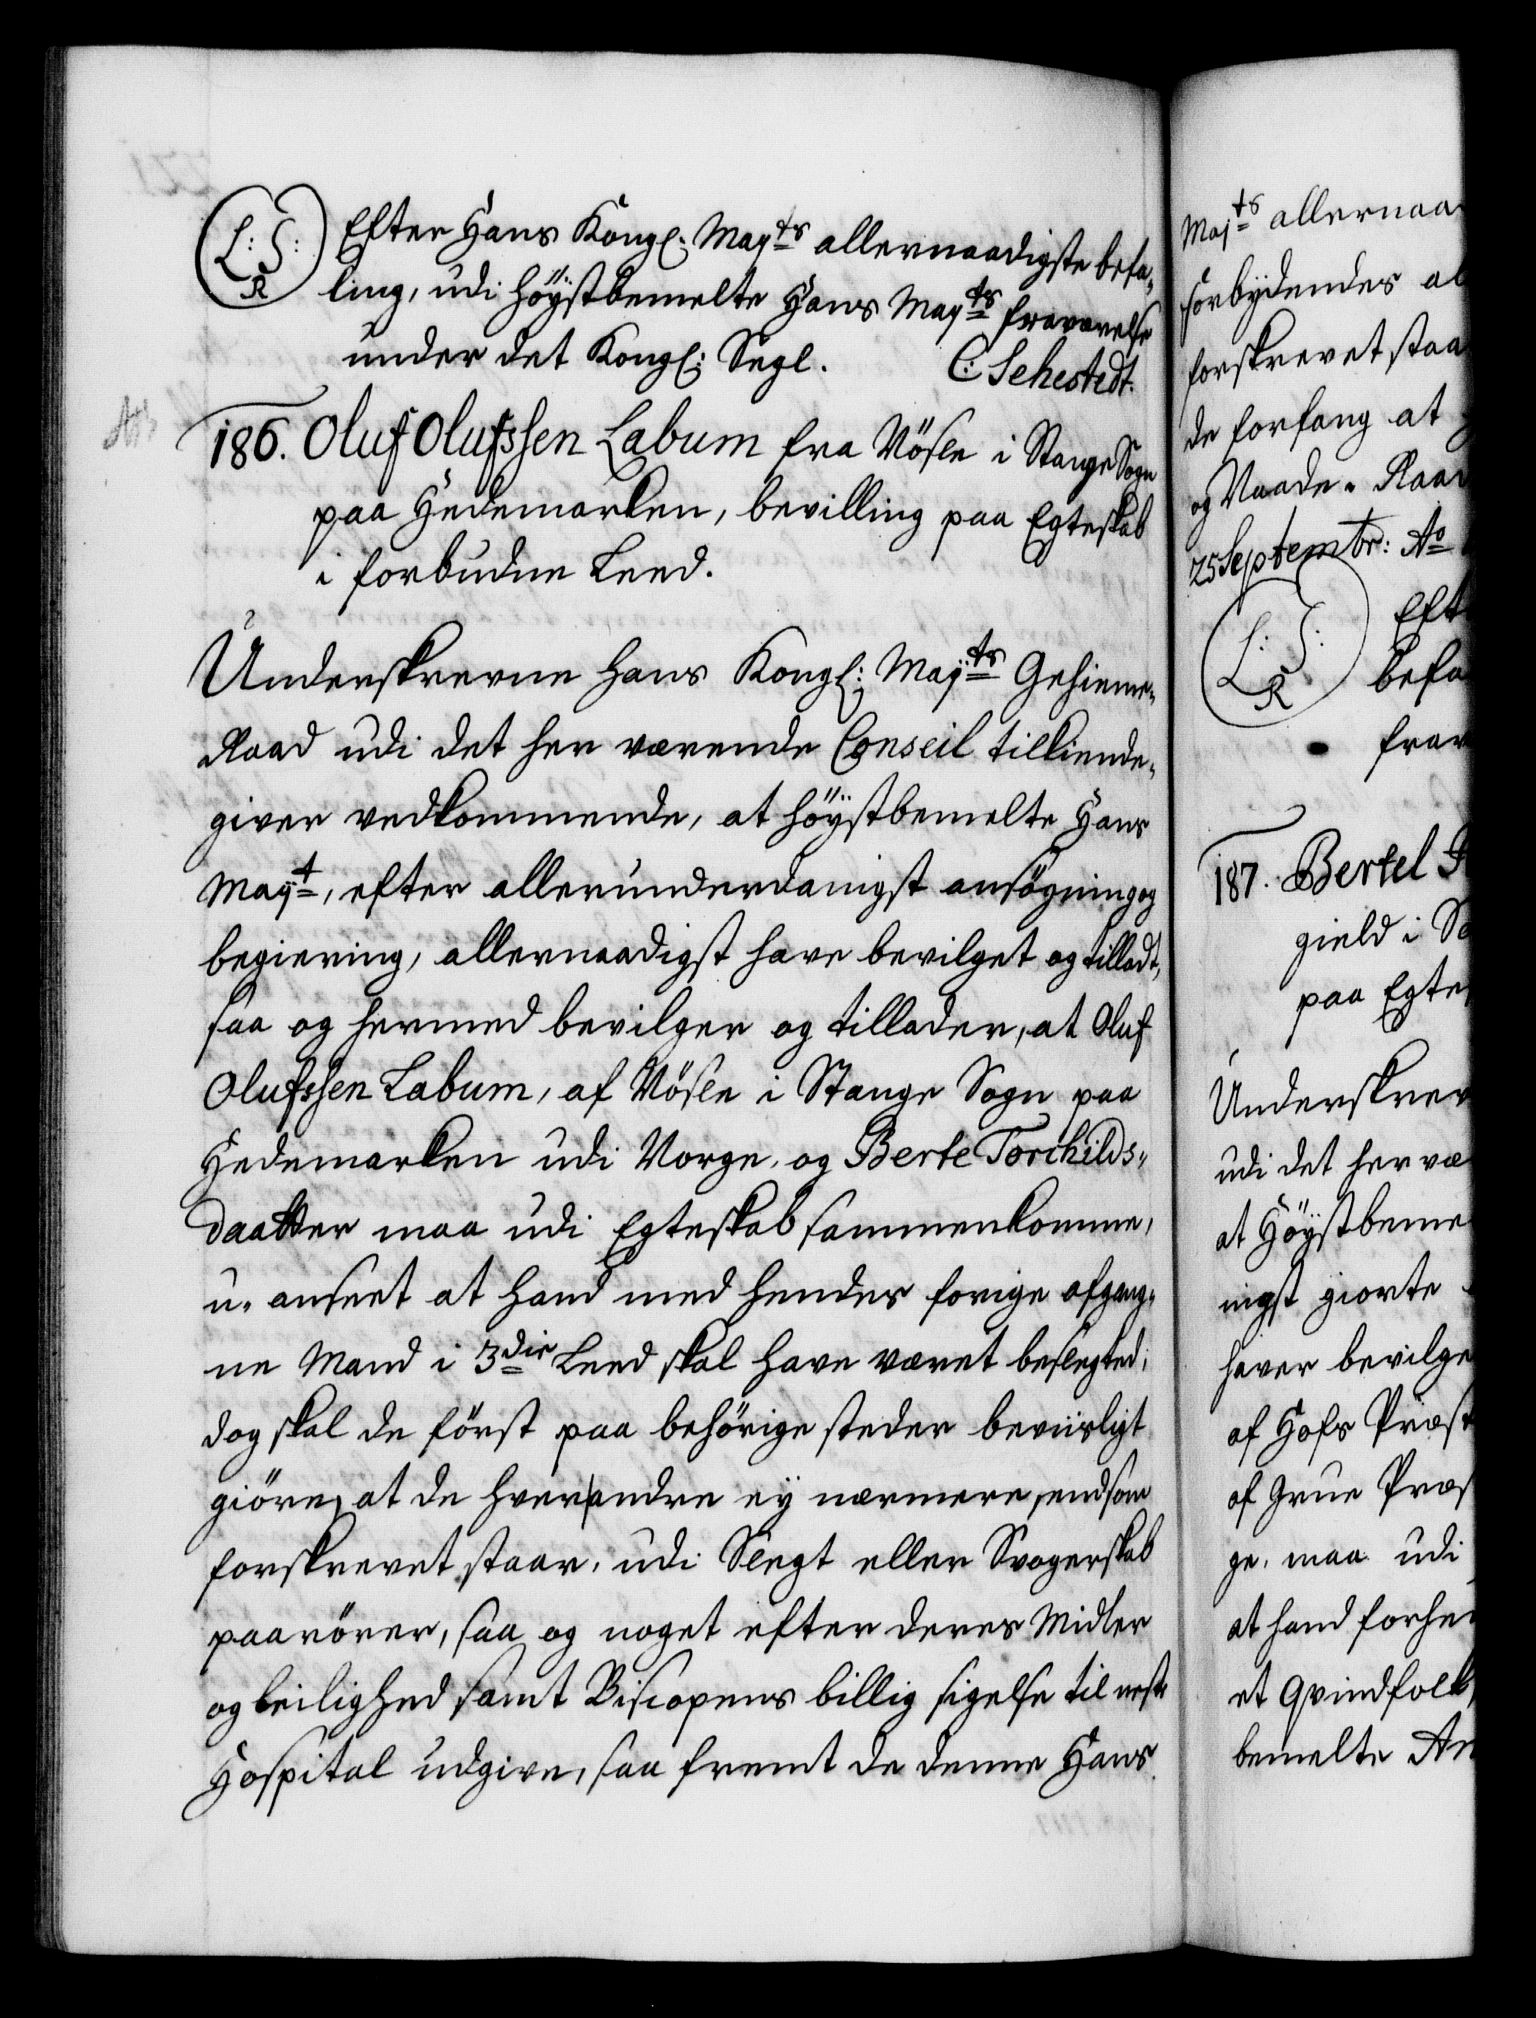 L: S:
R
Efter Hans Kongl: Mayts allernaadigste befa-
ling, udi höystbemelte Hans Mayts fraværelse
under det Kongl: Segl.
C: Sehestedt.
186. Oluf Olufssen Labum fra Nösle i Stange Sogn
paa Hedemarken, bevilling paa Egteskab
i forbudne Leed.
Underskrevne Hans Kongl: Mayts Geheime-
Raad udi det her værende Conseil tilkiende-
giver vedkommende, at höystbemelte Hans
Mayt, efter allerunderdanigst ansögning og
begiering, allernaadigst have bevilget og tilladt,
saa og hermed bevilger og tillader, at Oluf
Olufssen Labum, af Nösle i Stange Sogn paa
Hedemarken udi Norge, og Berte Torchilds-
daatter maa udi Egteskab sammenkomme,
u-anseet at hand med hendes forige afgang-
ne Mand i 3die Leed skal have været beslegted;
dog skal de först paa behörige steder beviisligt
giöre, at de hverandre ey nærmere, end som
forskrevet staar, udi Slegt eller Svogerskab
paarörer, saa og noget efter deres Midler
og leilighed samt Biscopens billig sigelse til neste
Hospital udgive, saa fremt de denne Hans
Mayts allernaa
forbydendes al
forskrevet staa
de forfang at
og Naade. Raad
25 Septembr: Ao
L: S:
R
Eft
befa
frav
187. Bertel
gield i So
paa Egte
Underskrev
udi det her væ
at Höystbeme
nigst giorte
haver bevilge
af Hofs Præst
af Grue Præs
ge, maa udi
at hand forhe
et Qvindfolk,
bemelte An